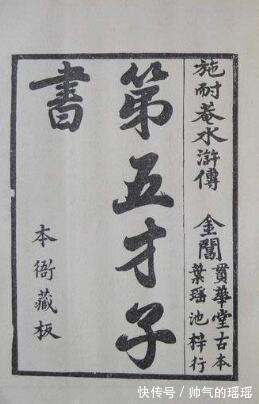 施耐菴水滸傳
金閶
貫華堂古本
葉瑶池梓行
第五才子
書
本衙藏板
快传号／帅气的瑶瑶